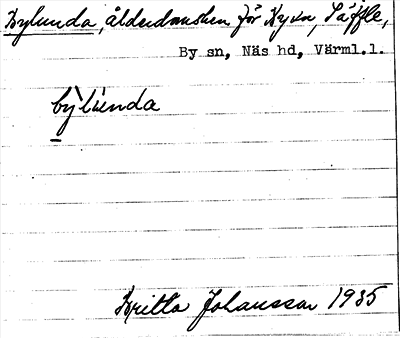 Bylunda, ålderdomshem för Kyrk, Säffle,
By sn, Näs hd, Värml.l.
by̆lùnda
Britta Johansson 1935